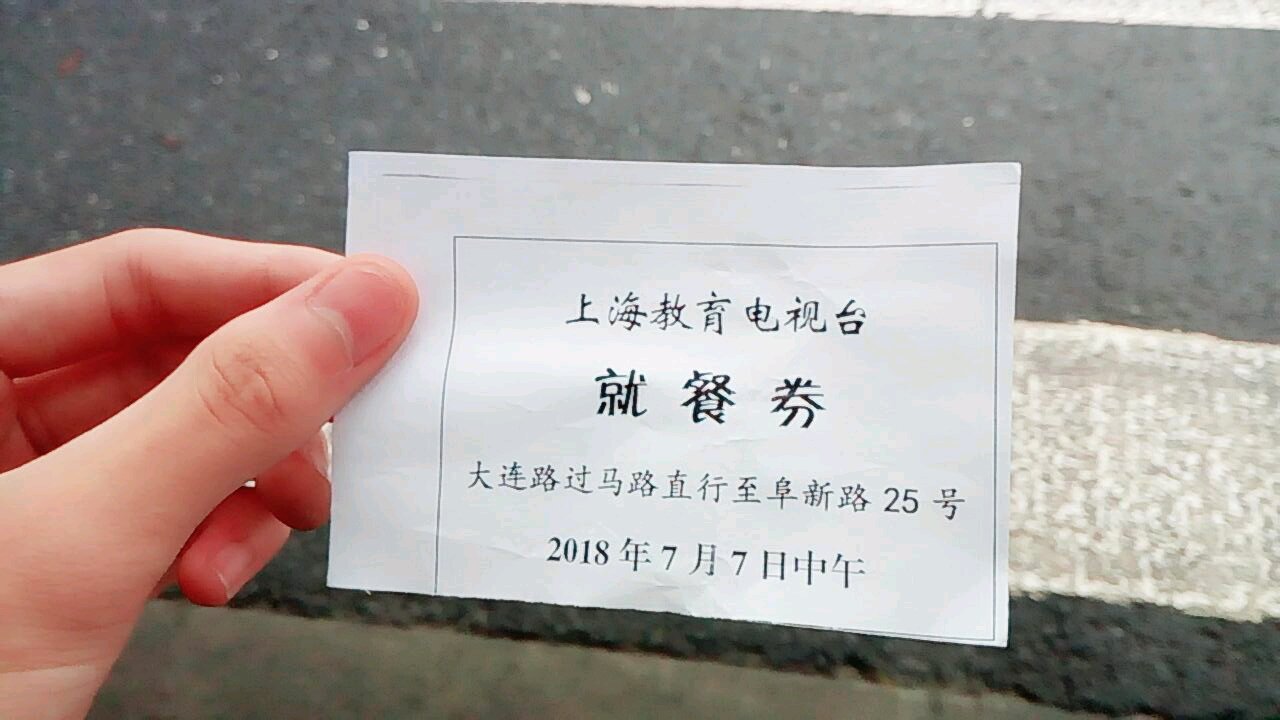 上海教育电视台
就餐券
大连路过马路直行至阜新路 25 号
2018 年 7 月 7 日中午